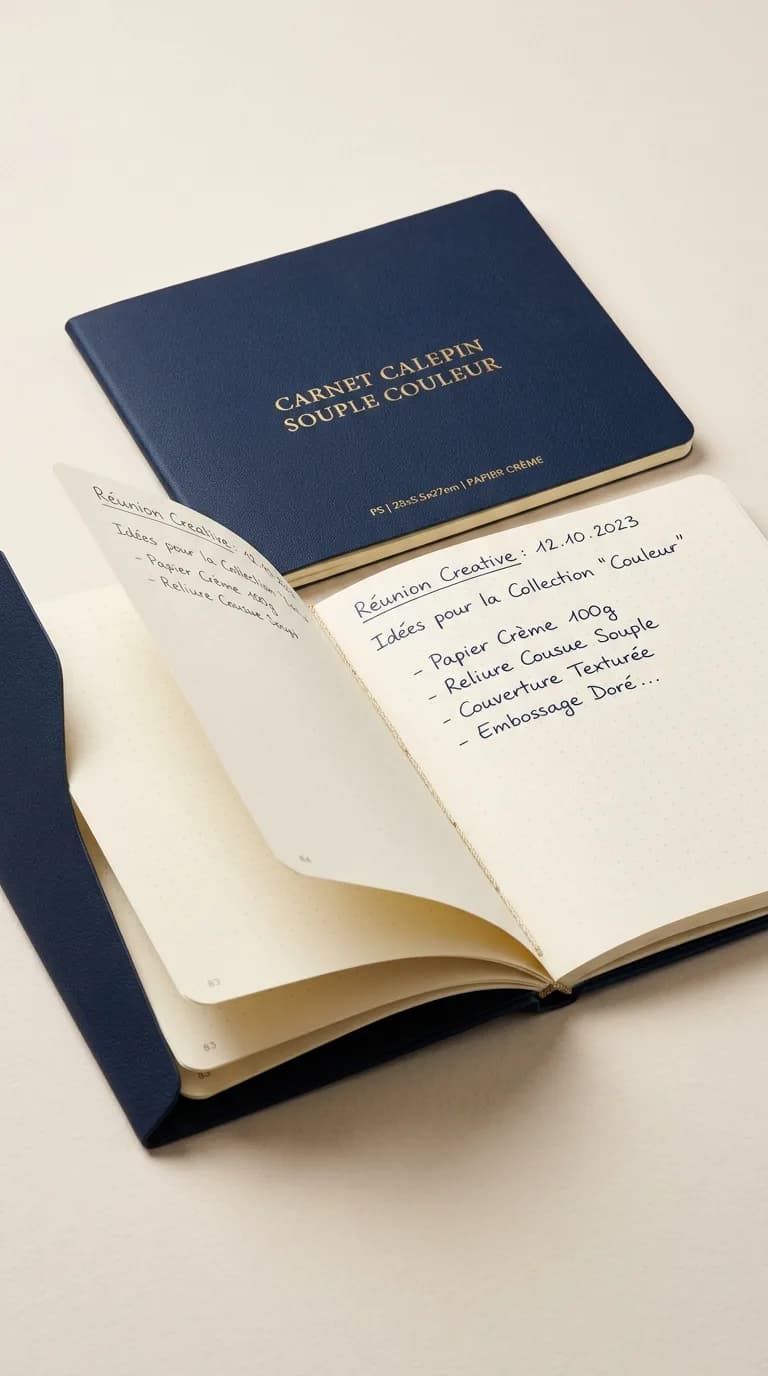 CARNET CALEPIN
SOUPLE COULEUR
PAPIER CRÈME
Réunion Creative: 12.10.2023
Idées pour la Collection
- Papier Crème 100g
- Reliure Cousue
Réunion Creative: 12.10.2023
Idées pour la Collection "Couleur"
- Papier Crème 100g
- Reliure Cousue Souple
- Couverture Texturée
- Embossage Doré...
83